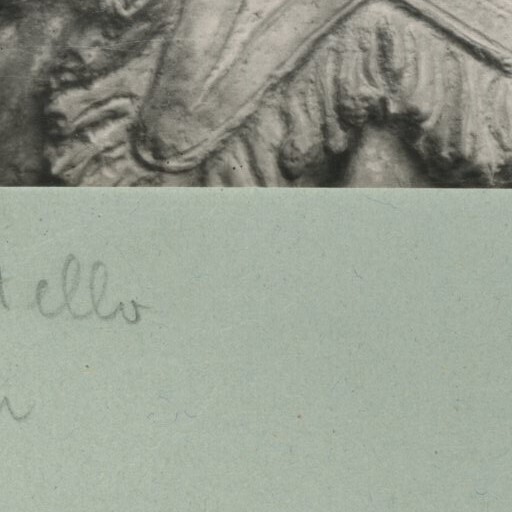 tello
n